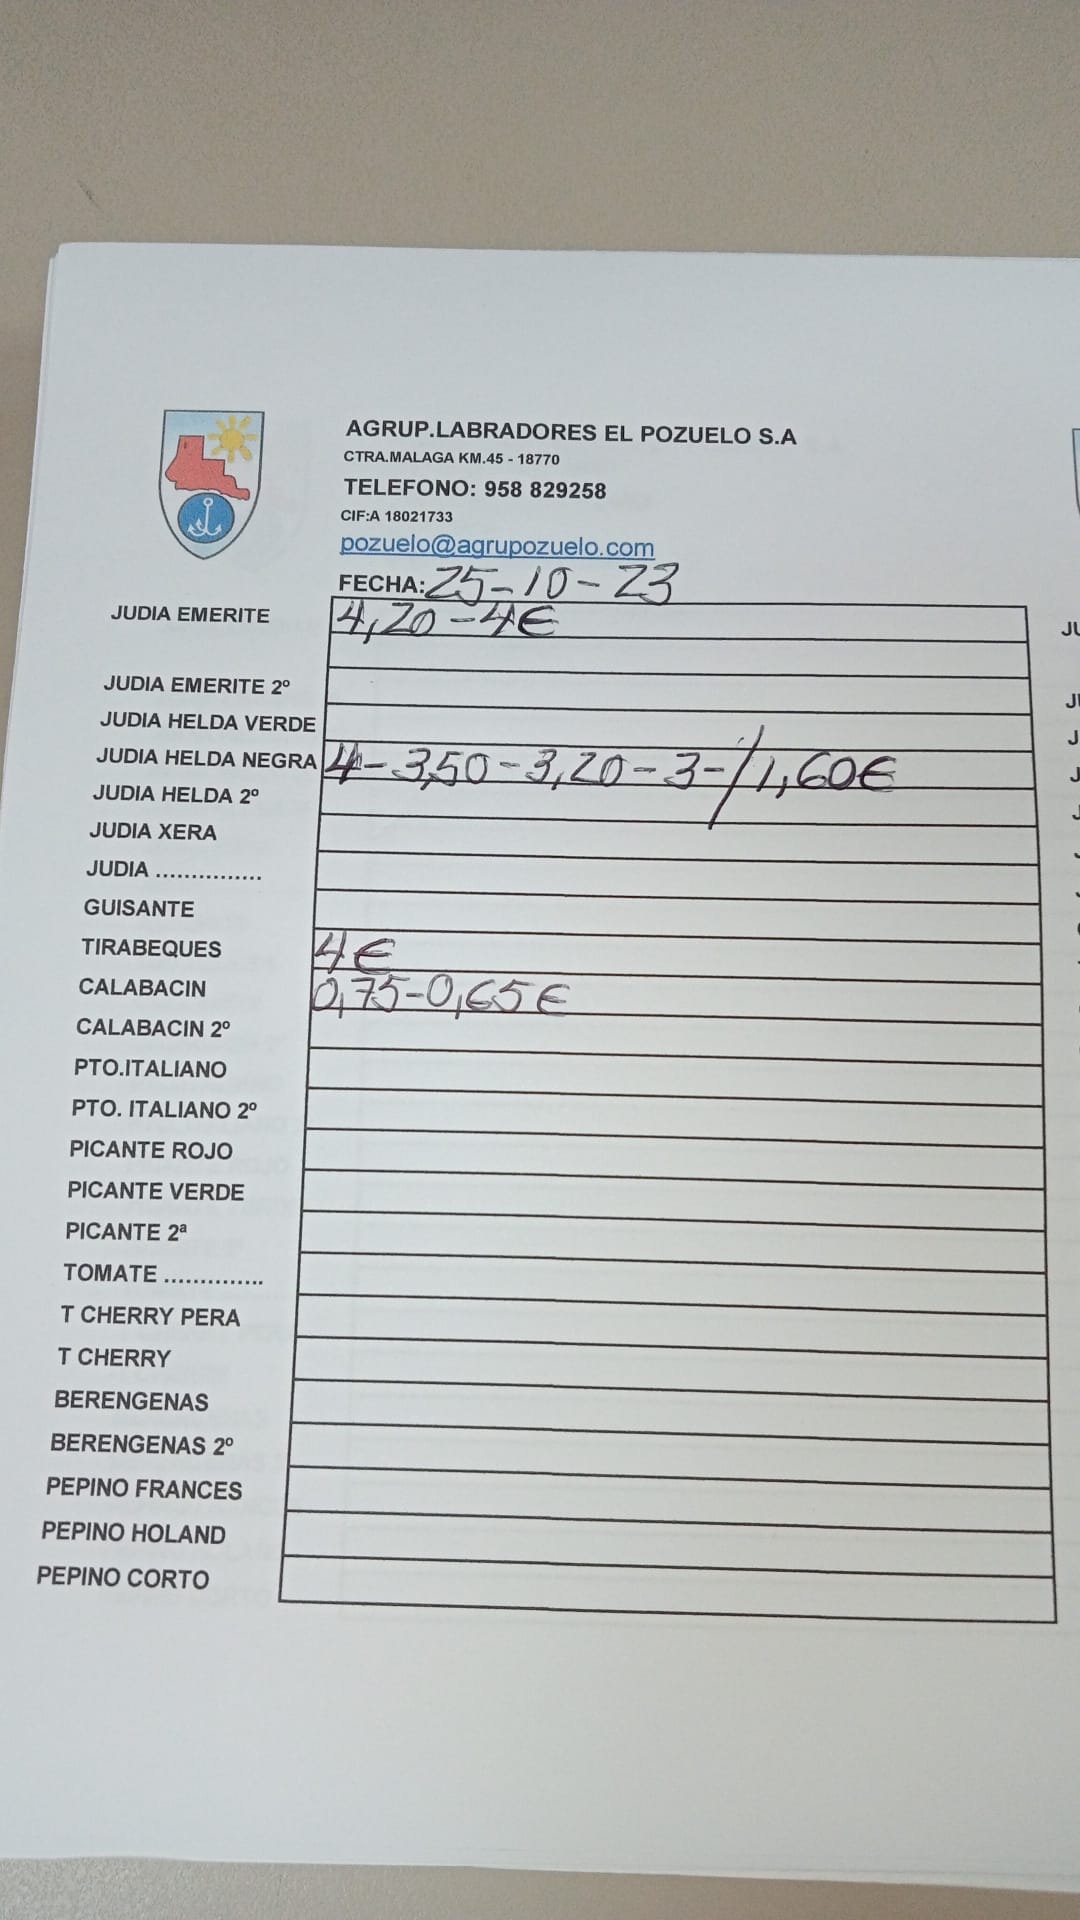 AGRUP.LABRADORES EL POZUELO S.A
CTRA.MALAGA KM.45 - 18770
TELEFONO: 958 829258
CIF:A 18021733
pozuelo@agrupozuelo.com
FECHA: 25-10-23
JUDIA EMERITE 4,20-4€
JUDIA EMERITE 2º
JUDIA HELDA VERDE
JUDIA HELDA NEGRA 4-3,50-3,20-3-/1,60€
JUDIA HELDA 2º
JUDIA XERA
JUDIA ...............
GUISANTE
TIRABEQUES 4€
CALABACIN 0,75-0,65€
CALABACIN 2º
PTO.ITALIANO
PTO. ITALIANO 2º
PICANTE ROJO
PICANTE VERDE
PICANTE 2ª
TOMATE ..............
T CHERRY PERA
T CHERRY
BERENGENAS
BERENGENAS 2º
PEPINO FRANCES
PEPINO HOLAND
PEPINO CORTO